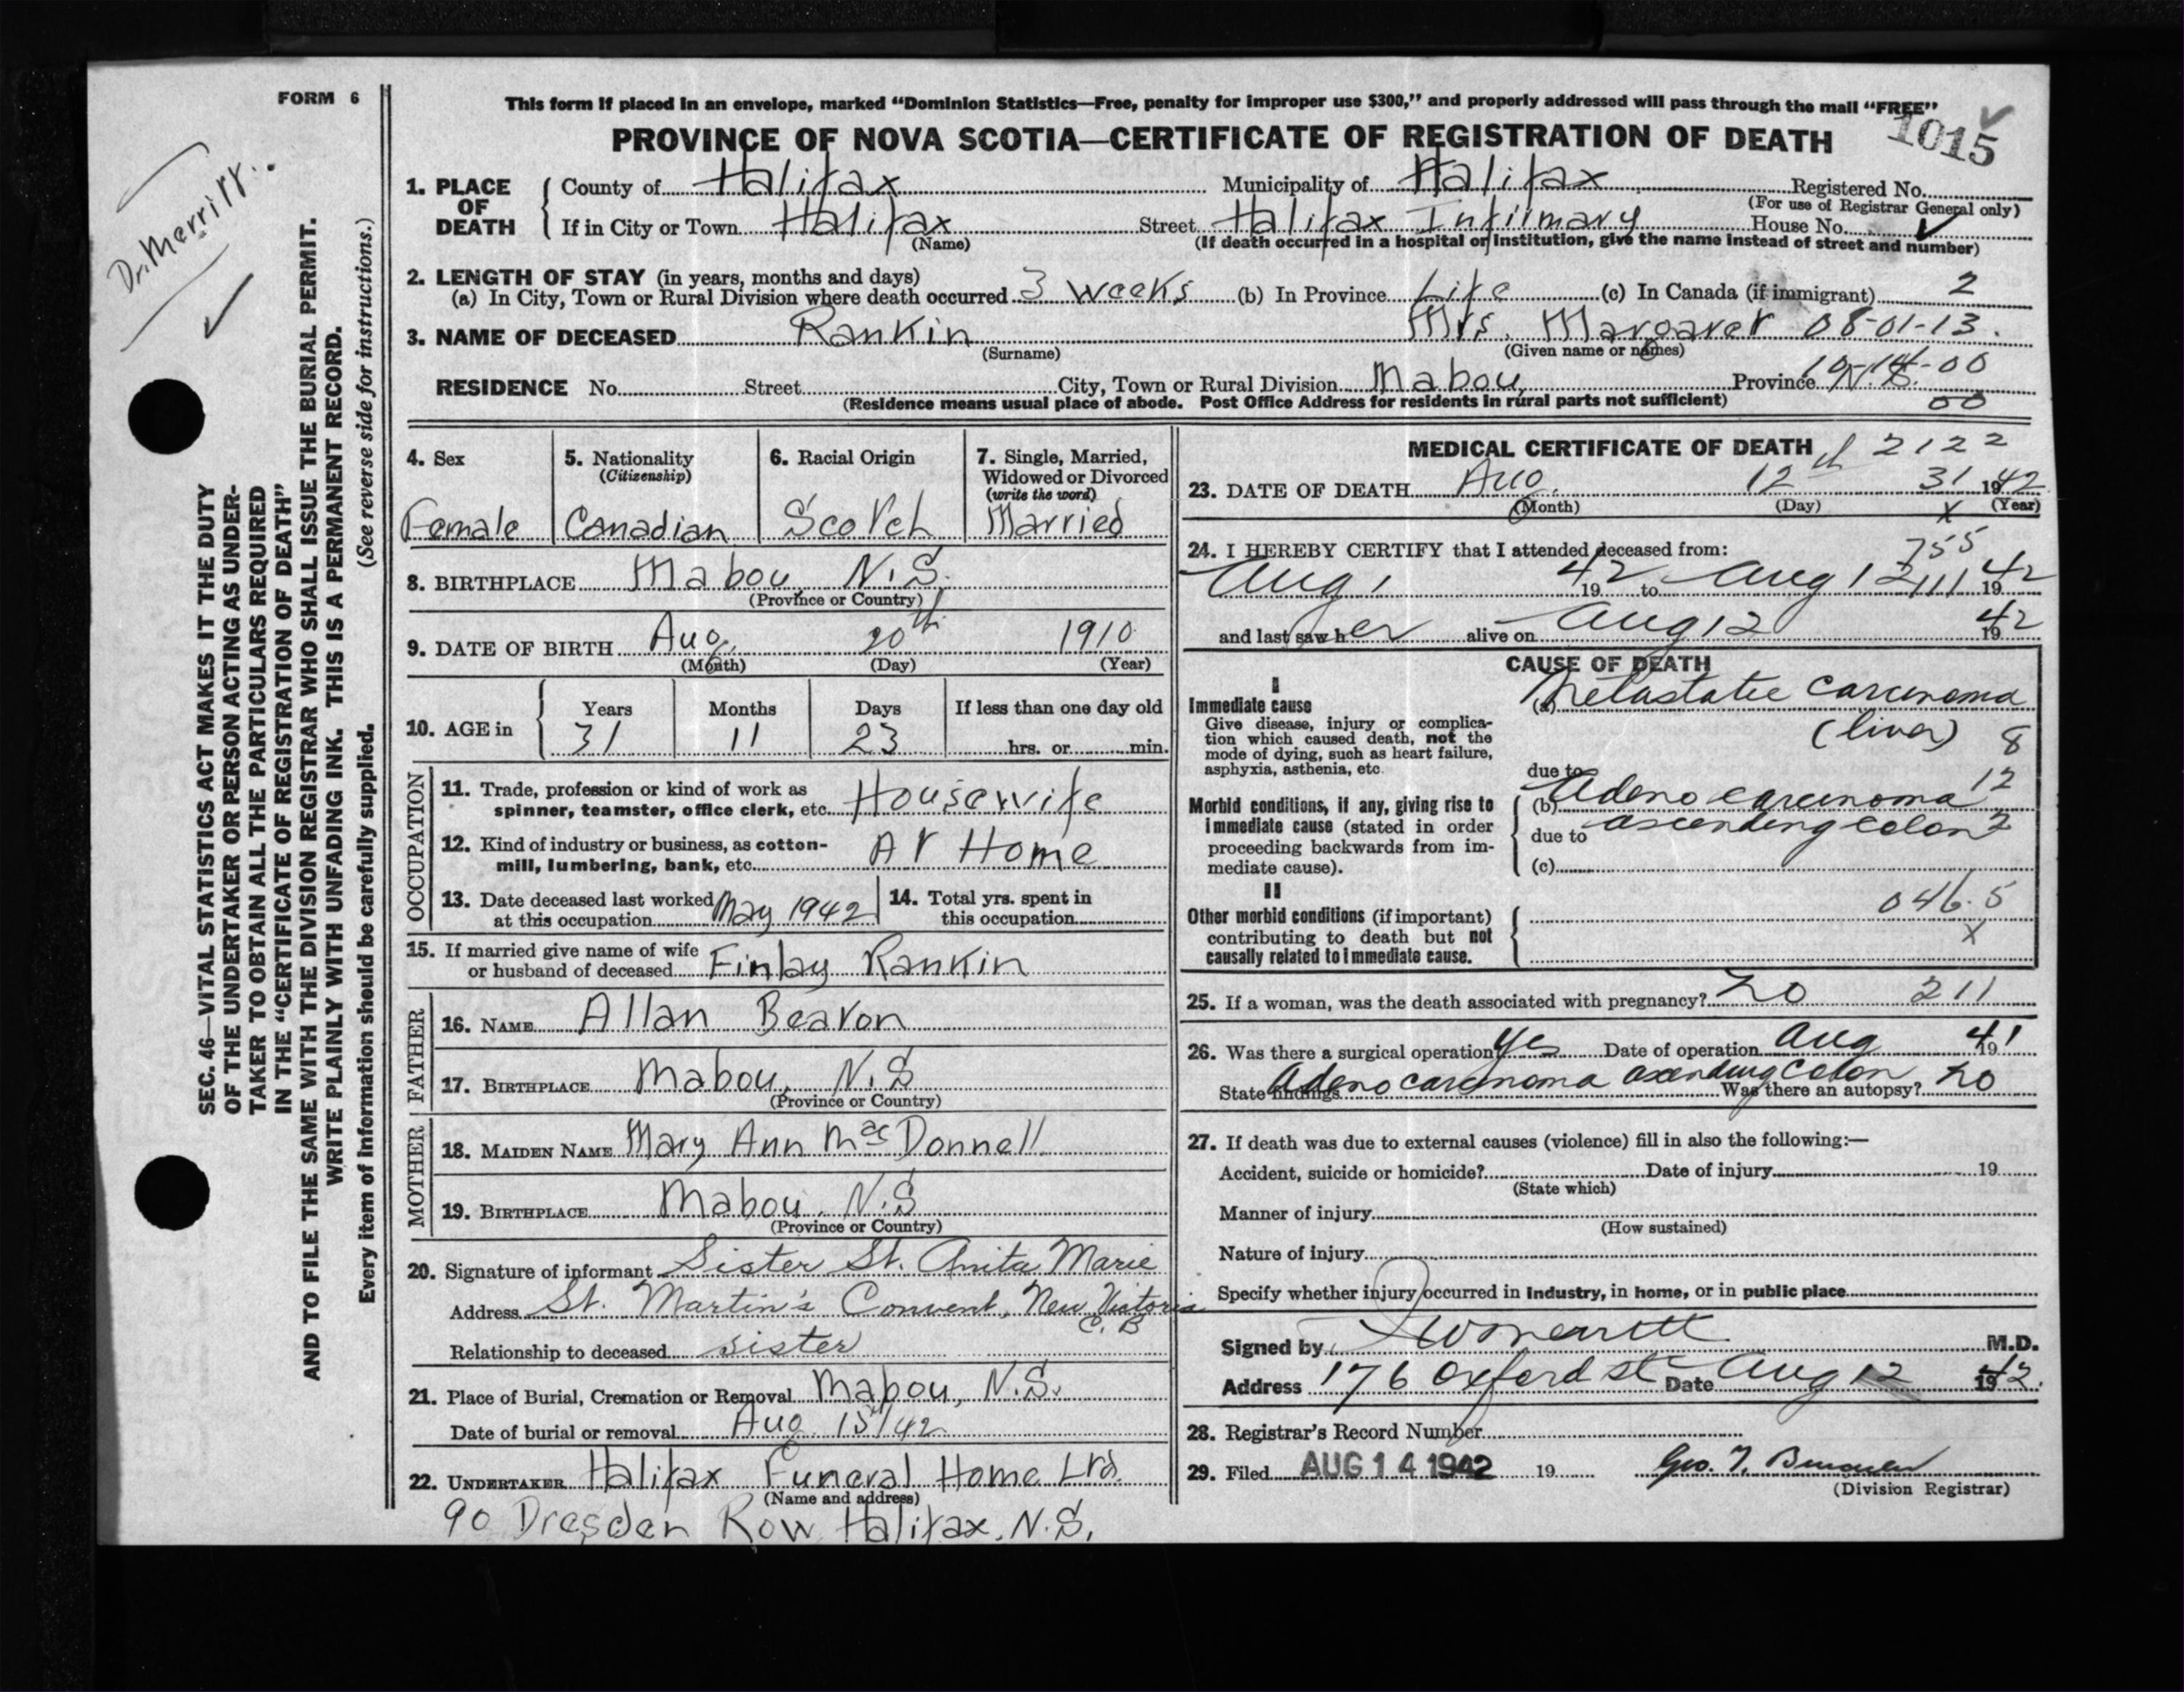 FORM 6
Dr. Merritt.
SEC. 46—VITAL STATISTICS ACT MAKES IT THE DUTY
OF THE UNDERTAKER OR PERSON ACTING AS UNDER-
TAKER TO OBTAIN ALL THE PARTICULARS REQUIRED
IN THE "CERTIFICATE OF REGISTRATION OF DEATH"
AND TO FILE THE SAME WITH THE DIVISION REGISTRAR WHO SHALL ISSUE THE BURIAL PERMIT.
WRITE PLAINLY WITH UNFADING INK. THIS IS A PERMANENT RECORD.
Every item of information should be carefully supplied. (See reverse side for instructions.)
This form if placed in an envelope, marked "Dominion Statistics—Free, penalty for improper use $300," and properly addressed will pass through the mail "FREE"
PROVINCE OF NOVA SCOTIA—CERTIFICATE OF REGISTRATION OF DEATH
1015
1. PLACE OF DEATH County of Halifax Municipality of Halifax Registered No.
(For use of Registrar General only)
If in City or Town Halifax Street Halifax Infirmary House No.
(Name) (If death occurred in a hospital or institution, give the name instead of street and number)
2. LENGTH OF STAY (in years, months and days)
(a) In City, Town or Rural Division where death occurred 3 weeks (b) In Province Life (c) In Canada (if immigrant) 2
3. NAME OF DECEASED Rankin Mrs. Margaret 08-01-13.
(Surname) (Given name or names)
10-14-00
RESIDENCE No. Street City, Town or Rural Division Mabou, Province N.S.
(Residence means usual place of abode. Post Office Address for residents in rural parts not sufficient) 00
4. Sex 5. Nationality 6. Racial Origin 7. Single, Married,
(Citizenship) Widowed or Divorced
(write the word)
Female Canadian Scotch Married
8. BIRTHPLACE Mabou N.S.
(Province or Country)
9. DATE OF BIRTH Aug. 20th 1910
(Month) (Day) (Year)
10. AGE in Years Months Days If less than one day old
31 11 23 hrs. or min.
OCCUPATION
11. Trade, profession or kind of work as
spinner, teamster, office clerk, etc. Housewife
12. Kind of industry or business, as cotton-
mill, lumbering, bank, etc. At Home
13. Date deceased last worked at this occupation May 1942 14. Total yrs. spent in this occupation
15. If married give name of wife
or husband of deceased Finlay Rankin
FATHER
16. NAME Allan Beaton
17. BIRTHPLACE Mabou, N.S
(Province or Country)
MOTHER
18. MAIDEN NAME Mary Ann MacDonnell
19. BIRTHPLACE Mabou, N.S
(Province or Country)
20. Signature of informant Sister St. Anita Marie
Address St. Martin's Convent, New Victoria
C. B
Relationship to deceased sister
21. Place of Burial, Cremation or Removal Mabou, N.S.
Date of burial or removal Aug. 15/42
22. UNDERTAKER Halifax Funeral Home Ltd.
(Name and address)
90 Dresden Row, Halifax, N.S.
MEDICAL CERTIFICATE OF DEATH 2122
23. DATE OF DEATH Aug. 12th 31 1942
(Month) (Day) (Year)
X
24. I HEREBY CERTIFY that I attended deceased from: 755
Aug 1 1942 to Aug 12 111 1942
and last saw her alive on Aug 12 1942
CAUSE OF DEATH
I
Immediate cause
Give disease, injury or complica-
tion which caused death, not the
mode of dying, such as heart failure,
asphyxia, asthenia, etc.
(a) Metastatic carcinoma
(liver) 8
due to 12
Morbid conditions, if any, giving rise to
immediate cause (stated in order
proceeding backwards from im-
mediate cause).
(b) Adenocarcinoma
due to ascending colon 2
(c)
II
Other morbid conditions (if important)
contributing to death but not
causally related to immediate cause.
046.5
X
25. If a woman, was the death associated with pregnancy? no 211
26. Was there a surgical operation? Yes Date of operation Aug 1941
State findings Adenocarcinoma ascending colon Was there an autopsy? no
27. If death was due to external causes (violence) fill in also the following:—
Accident, suicide or homicide? Date of injury 19
(State which)
Manner of injury
(How sustained)
Nature of injury
Specify whether injury occurred in industry, in home, or in public place
Signed by Merritt M.D.
Address 176 Oxford St Date Aug 12 1942.
28. Registrar's Record Number
29. Filed AUG 14 1942 19 Geo. T.
(Division Registrar)